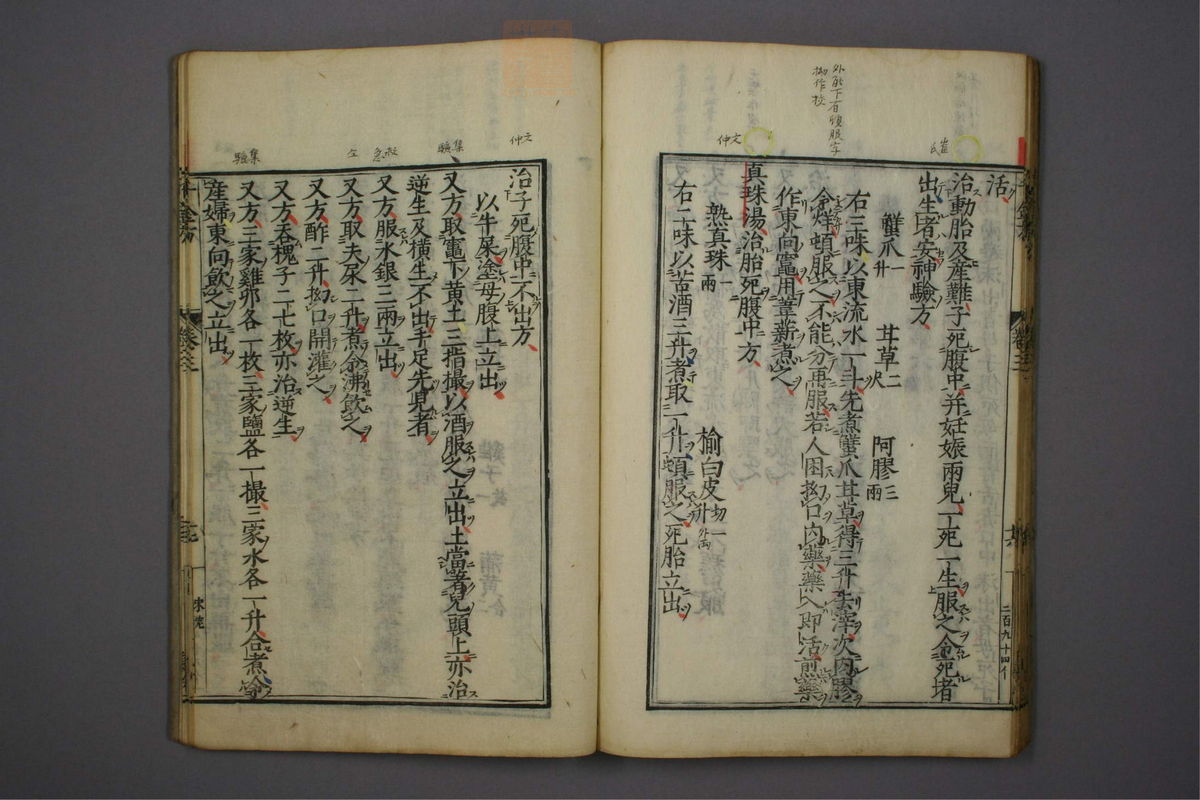 活
治動胎及産難子死腹中并妊娠兩兒一死一生服之令死者
出生者安神驗方
蟹爪一升 甘草二尺 阿膠三兩
右三味以東流水一斗先煮蟹爪甘草得三升去滓次内膠
令烊頓服之不能分再服若人困拗口内藥藥入即活煎藥
作東向竈用葦薪煮之
真珠湯治胎死腹中方
熟真珠一兩 榆白皮切一升
右二味以苦酒三升煮取一升頓服之死胎立出
治子死腹中不出方
以牛屎塗母腹上立出
又方取竈下黄土三指撮以酒服之立出土當著兒頭上亦治
逆生及横生不出手足先見者
又方服水銀三兩立出
又方取夫尿二升煮令沸飲之
又方酢二升拗口開灌之
又方吞槐子二七枚亦治逆生
又方三家雞卵各一枚三家鹽各一撮三家水各一升合煮令
産婦東向飲之立出
崔氏
外臺下有頓服字
拗作校
文仲
文仲
集驗
集驗
二百九十四个